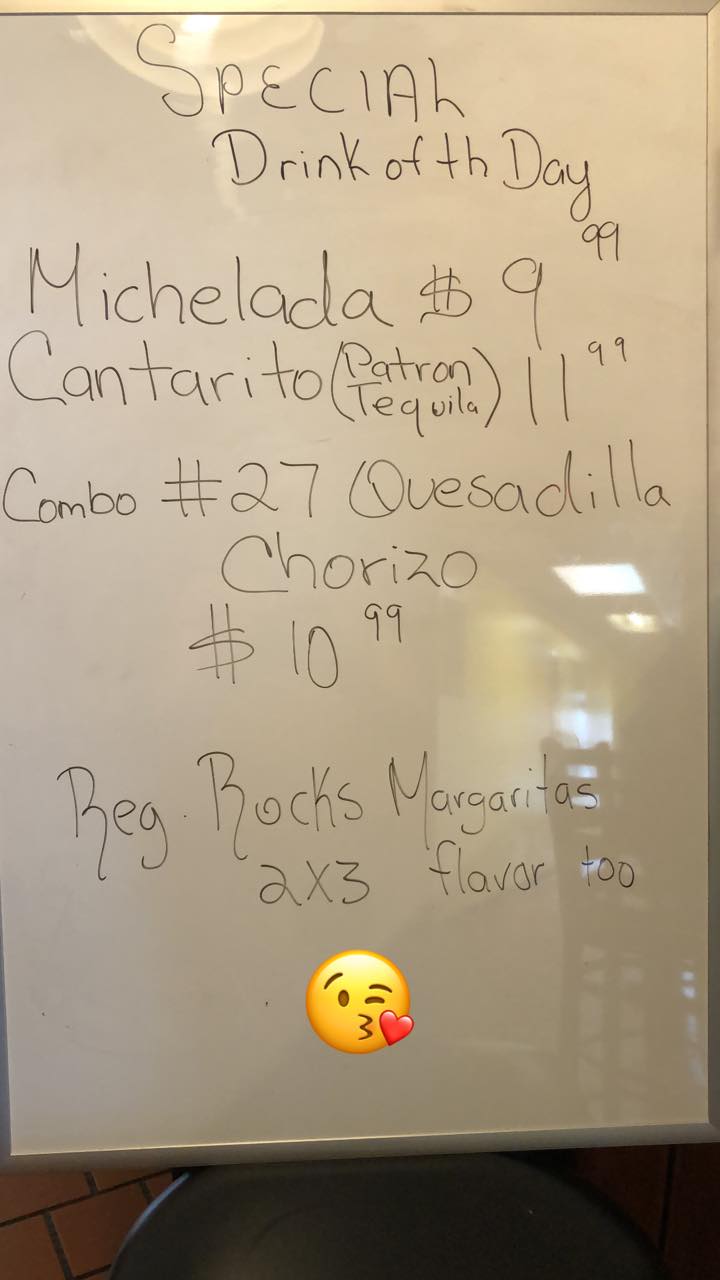 SPECIAL
Drink of th Day
Michelada $ 9 99
Cantarito (Patron Tequila) 11 99
Combo #27 Quesadilla
Chorizo
$ 10 99
Reg. Rocks Margaritas
2X3 flavor too